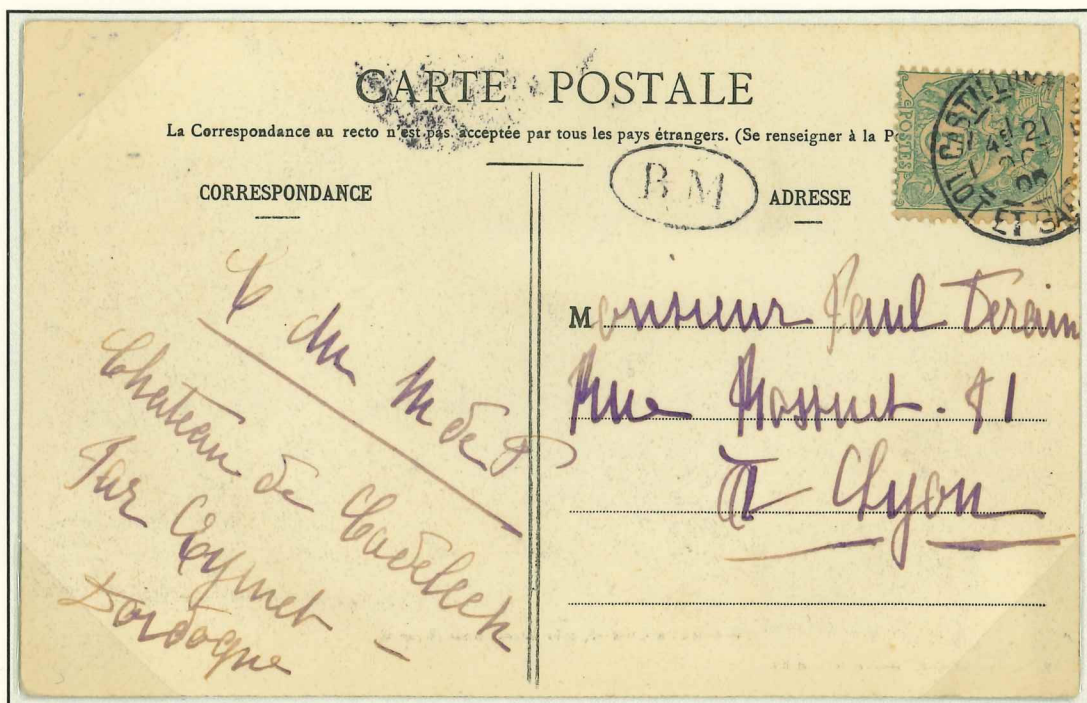 CARTE POSTALE
La Correspondance au recto n'est pas acceptée par tous les pays étrangers. (Se renseigner à la
CORRESPONDANCE
ADRESSE
B.M
POSTES
CASTILLON
LOT ET GAR
du M de
Chateau de Cadelech
Par Eymet -
Dordogne
Monsieur Paul Derain
Rue Bossuet. 81
à Lyon